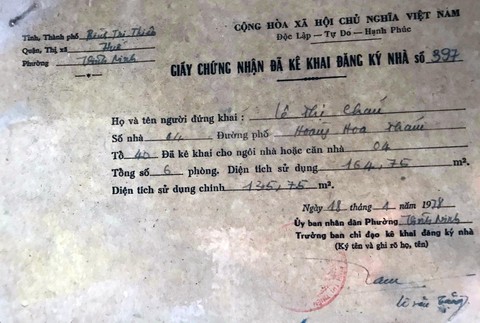 CỘNG HÒA XÃ HỘI CHỦ NGHĨA VIỆT NAM
Độc Lập — Tự Do — Hạnh Phúc
Tỉnh, Thành phố Bình Trị Thiên
Quận, Thị xã Huế
Phường Vĩnh Ninh
GIẤY CHỨNG NHẬN ĐÃ KÊ KHAI ĐĂNG KÝ NHÀ SỐ 397
Họ và tên người đứng khai : Lê Thị Chaú
Số nhà 04 Đường phố Hoàng Hoa Thám
Tổ 40 Đã kê khai cho ngôi nhà hoặc căn nhà 04
Tổng số 6 phòng. Diện tích sử dụng 164,75 m².
Diện tích sử dụng chính 135,75 m².
Ngày 18 tháng 1 năm 1978
Ủy ban nhân dân Phường Vĩnh Ninh
Trưởng ban chỉ đạo kê khai đăng ký nhà
(Ký tên và ghi rõ họ, tên)